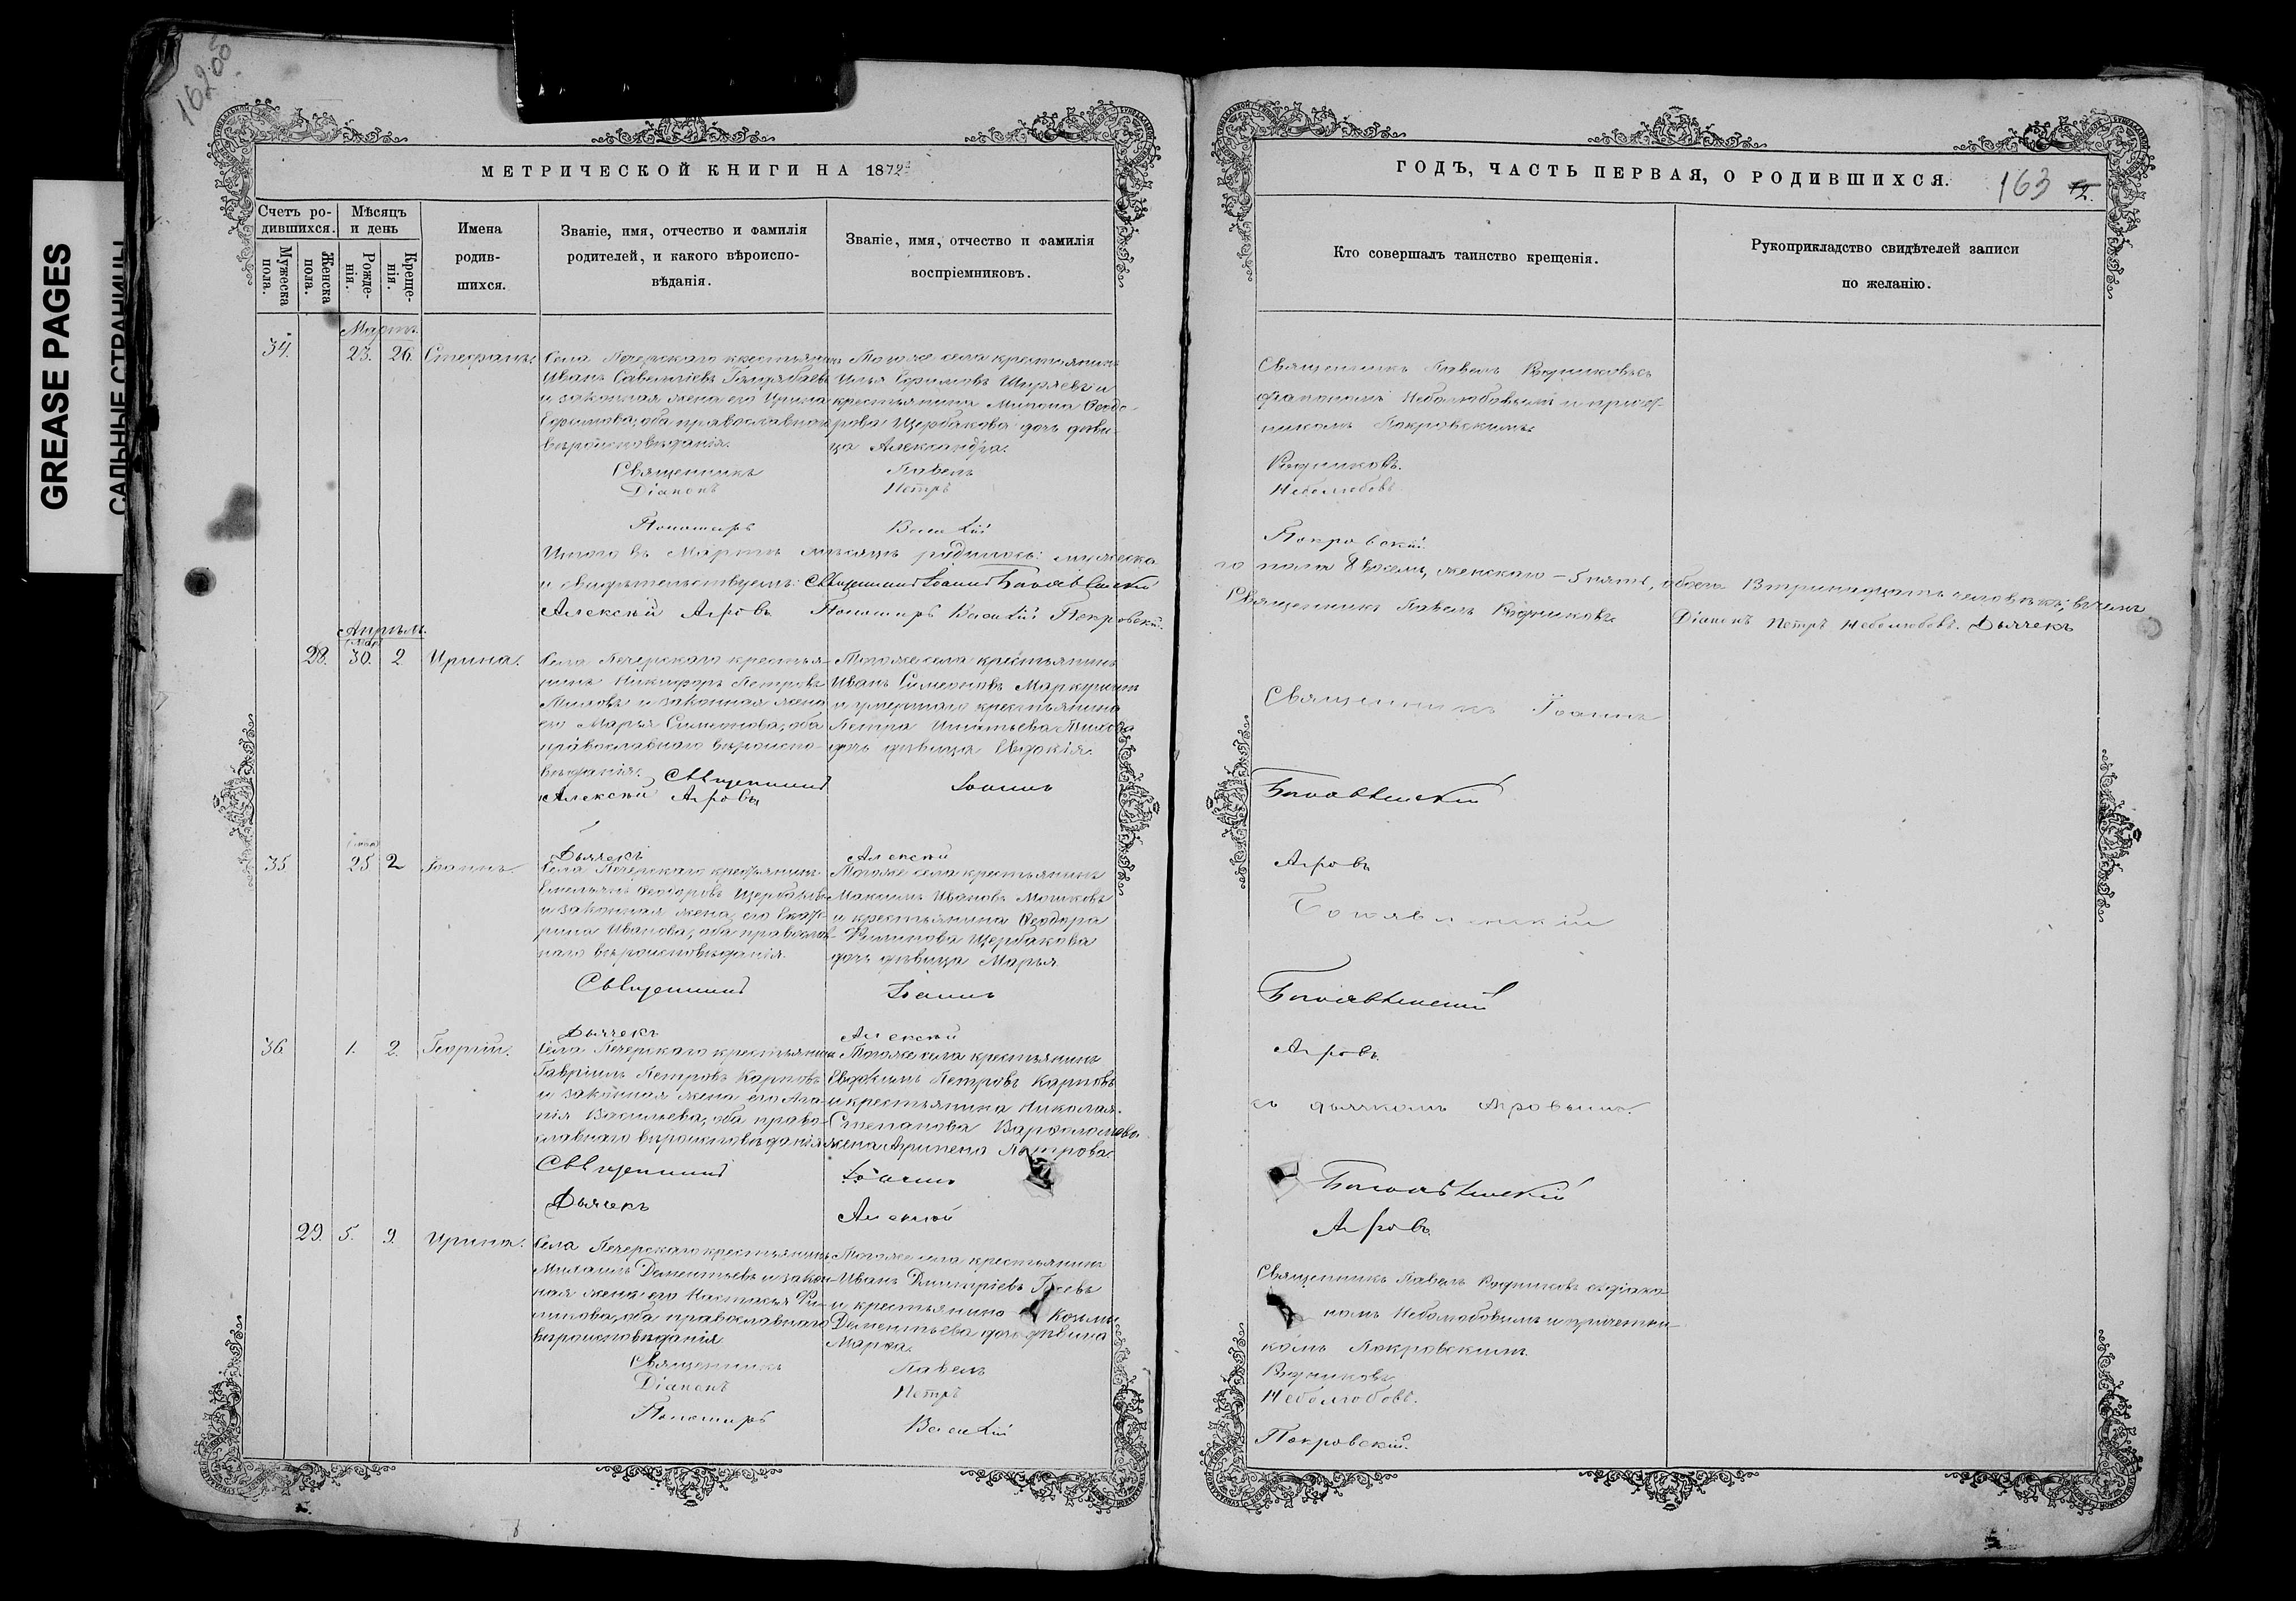 GREASE PAGES
САЛЬНЫЕ СТРАНИЦЫ
162 об
МЕТРИЧЕСКОЙ КНИГИ НА 1872
Счетъ ро-
дившихся.
Мѣсяцъ
и день
Мужеска
пола.
Женска
пола.
Рожде-
нія.
Креще-
нія.
Имена
родив-
шихся.
Званіе, имя, отчество и фамилія
родителей, и какого вѣроиспо-
вѣданія.
Званіе, имя, отчество и фамилія
воспріемниковъ.
Мартъ
34. 23. 26. Стефанъ.
Села Печерскаго крестьянинъ
Иванъ Савельевъ
и законная жена его Ирина
Ефимова, оба православнаго
вѣроисповѣданія.
Тогоже села крестьянинъ
Илья Ефимовъ Ширяевъ и
крестьянина Мирона Ѳеодо-
рова Щербакова дочь дѣви-
ца Александра.
Священникъ Павелъ
Діаконъ Петръ
Пономарь Василій
Итого въ Мартѣ мѣсяцѣ родилось: мужеска
и свидѣтельствуемъ: Священникъ Іоаннъ Богоявленскій
Алексѣй Агровъ Пономарь Василій Покровскій.
Апрѣль.
28. 30. 2 Ирина.
Села Печерскаго крестья-
нинъ Никифоръ Петровъ
Миловъ и законная жена
его Марья Симеонова, оба
православнаго вѣроиспо-
вѣданія.
Тогоже села крестьянинъ
Иванъ Симеоновъ Маркушинъ
и умершаго крестьянина
Петра Игнатьева
дочь дѣвица Евдокія.
Священникъ Іоаннъ
Алексѣй Агровъ
Дьячекъ Алексѣй
35 25 2 Іоаннъ.
Села Печерскаго крестьянинъ
Емельянъ Ѳеодоровъ Щербаковъ
и законная жена его Екате-
рина Иванова, оба православ-
наго вѣроисповѣданія.
Тогоже села крестьянинъ
Максимъ Ивановъ
и крестьянина Ѳеодора
Филипова Щербакова
дочь дѣвица Марья
Священникъ Іоаннъ
Дьячекъ Алексѣй
36 1. 2. Георгій.
Села Печерскаго крестьянинъ
Гавріилъ Петровъ Карповъ
и законная жена его Ага-
пія Васильева, оба право-
славнаго вѣроисповѣданія
Тогоже села крестьянинъ
Евдокимъ Петровъ Карповъ
и крестьянина Николая
Степанова Варфоломѣева
жена Агрипена Петрова.
Священникъ Іоаннъ
Дьячекъ Алексѣй
29. 5. 9. Ирина.
Села Печерскаго крестьянинъ
Михаилъ Дементьевъ и закон-
ная жена его Настасья Фи-
липова, оба православнаго
вѣроисповѣданія
Тогоже села крестьянинъ
Иванъ Димитріевъ
и крестьянина Козьмы
Дементьева дочь дѣвица
Марѳа.
Священникъ Павелъ
Діаконъ Петръ
Пономарь Василій
ГОДЪ, ЧАСТЬ ПЕРВАЯ, О РОДИВШИХСЯ.
163
Кто совершалъ таинство крещенія.
Рукоприкладство свидѣтелей записи
по желанію.
Священникъ Павелъ Родниковъ съ
діакономъ Неболюбовымъ и причет-
никомъ Покровскимъ
Родниковъ.
Неболюбовъ
Покровскій
го пола 8 восемь, женскаго – 5 пять, обоего 13 тринадцать человѣкъ; въ чемъ
Священникъ Павелъ Родниковъ Діаконъ Петръ Неболюбовъ. Дьячекъ
Священникъ Іоаннъ
Богоявленскій
Агровъ
Богоявленскій
Богоявленскій
Агровъ.
съ дьячкомъ Агровымъ.
Богоявленскій
Агровъ
Священникъ Павелъ Родниковъ съ діако-
номъ Неболюбовымъ и причетни-
комъ Покровскимъ.
Родниковъ
Неболюбовъ.
Покровскій.